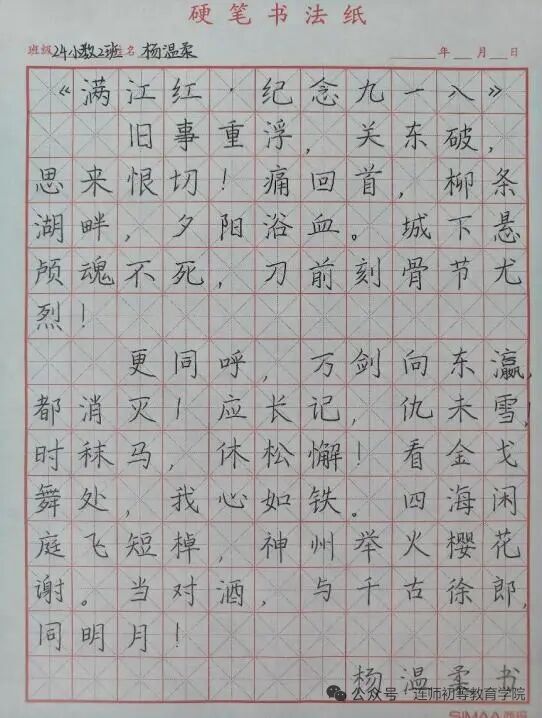 硬笔书法纸
班级 24小数2班 姓名 杨温柔 年 月 日
《满江红·纪念九一八》
旧事重浮，关东破，
思来恨切！痛回首，柳条
湖畔，夕阳浴血。城下悬
颅魂不死，刀前刻骨节尤
烈！
更同呼，万剑向东瀛，
都消灭！应长记，仇未雪！
时秣马，休松懈！看金戈
舞处，我心如铁。四海闲
庭飞短棹，神州举火樱花
谢。当对酒，与千古徐郎，
同明月！
杨温柔书
公众号 连师初等教育学院
SIMAA